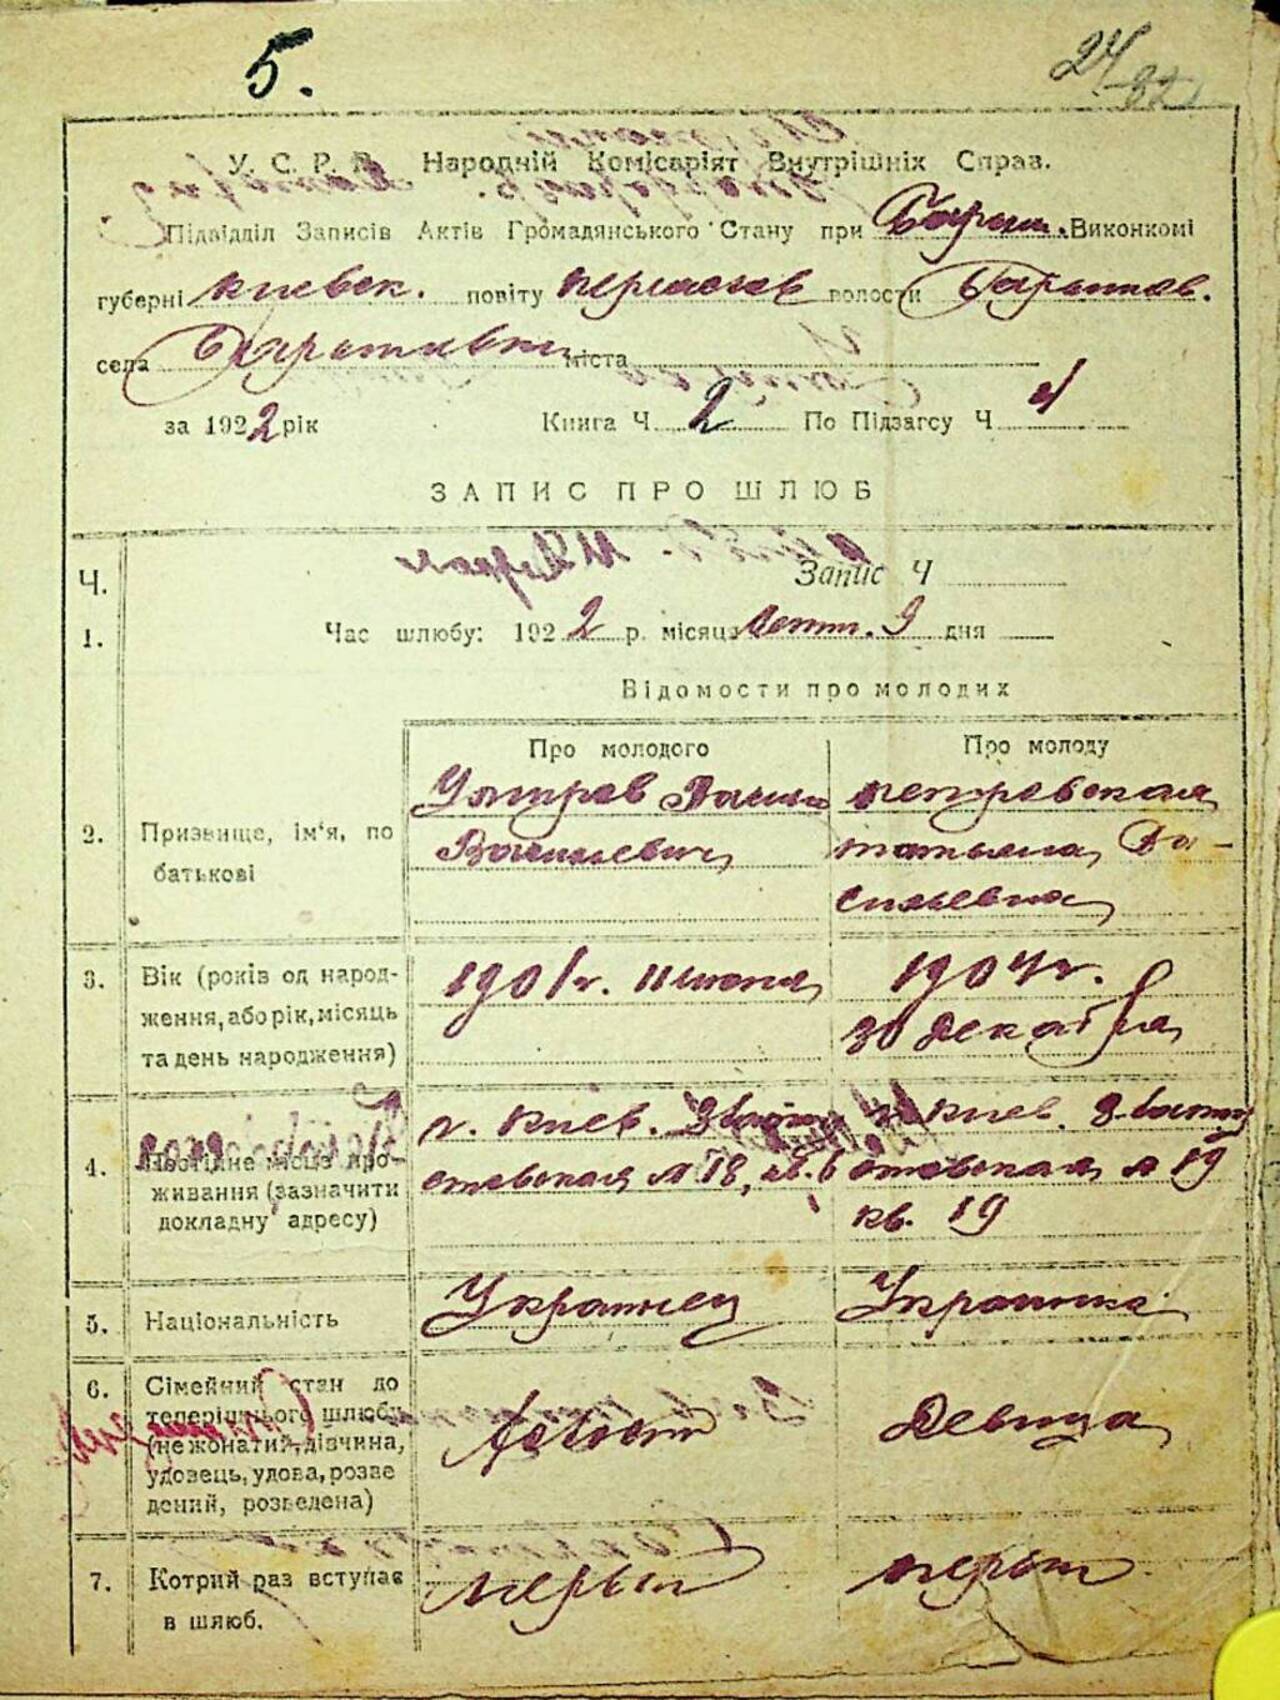 5.
24
82
У. С. Р. Р. Народній Комісаріят Внутрішніх Справ.
Підвідділ Записів Актів Громадянського Стану при Бариш. Виконкомі
губерні Киевск. повіту Переяслав волости Барышов.
села Барышевки міста
за 1922 рік Книга Ч. 2 По Підзагсу Ч
ЗАПИС ПРО ШЛЮБ
Ч. Запис Ч
1. Час шлюбу: 1922 р. місяця Сент. 9 дня
Відомости про молодих
Про молодого Про молоду
2. Призвище, ім'я, по батькові
Васильевич
Петровская
Татьяна, Ва-
сильевна
3. Вік (років од народ-
ження, або рік, місяць
та день народження)
1901 г. 11 июня
1904 г.
30 декабря
4. Постійне місце про-
живання (зазначити
докладну адресу)
г. Киев.
№ 18, кв. 6
г. Киев.
№ 19
кв. 19
5. Національність Украинец Украинка
6. Сімейний стан до
теперішнього шлюбу
(не жонатий, дівчина,
удовець, удова, розве
дений, розведена)
Холост Девица
7. Котрий раз вступає
в шлюб.
Первый первый